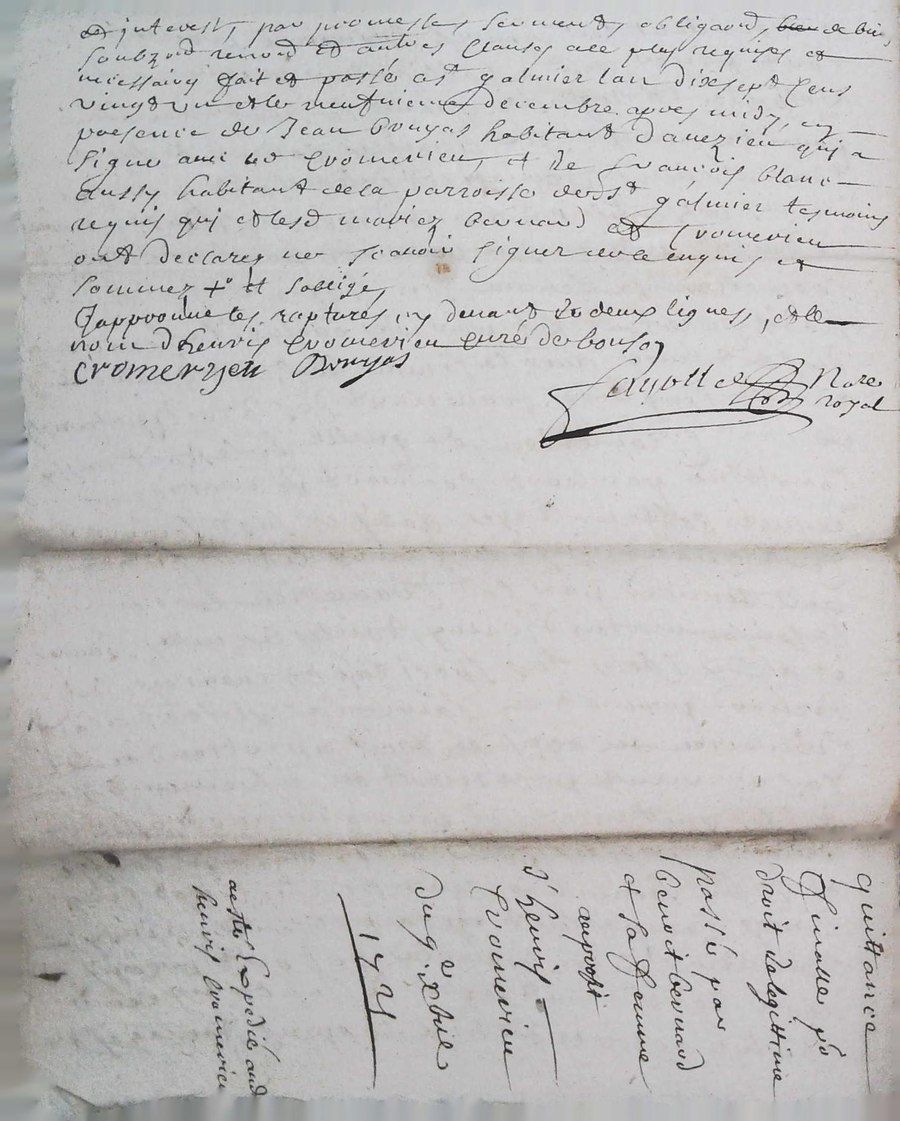 et interest, par promesses serments obligaon̄s, de bien
soubzon̄ renon̄ et autres clauses a ce plus requises et
necessaires fait et passé a st galmier lan dixsept cens
vingt un et le neufvieme decembre apres midy, en
presence de Jean bouyas habitant d'avezieu qui a
signe avec cromerieu, et de françois blanc
aussy habitant de la parroisse dud st galmier tesmoins
requis qui et lesd mariez bernard et cromerieu
ont declarez ne scavoir signer de ce enquis et
sommez +o et sobligé,
J'approuve les raptures, cy devant de deux lignes, et le
nom d'henris cromerieu curé de bouson
cromerieu Bouyas
Nore
royal
quittance
finalle po
droit de legittime
passé par
benoit bernard
et sa femme
au proffit
d'henris
Cromerieu
du 9e xbre
1721
henris cromerieu